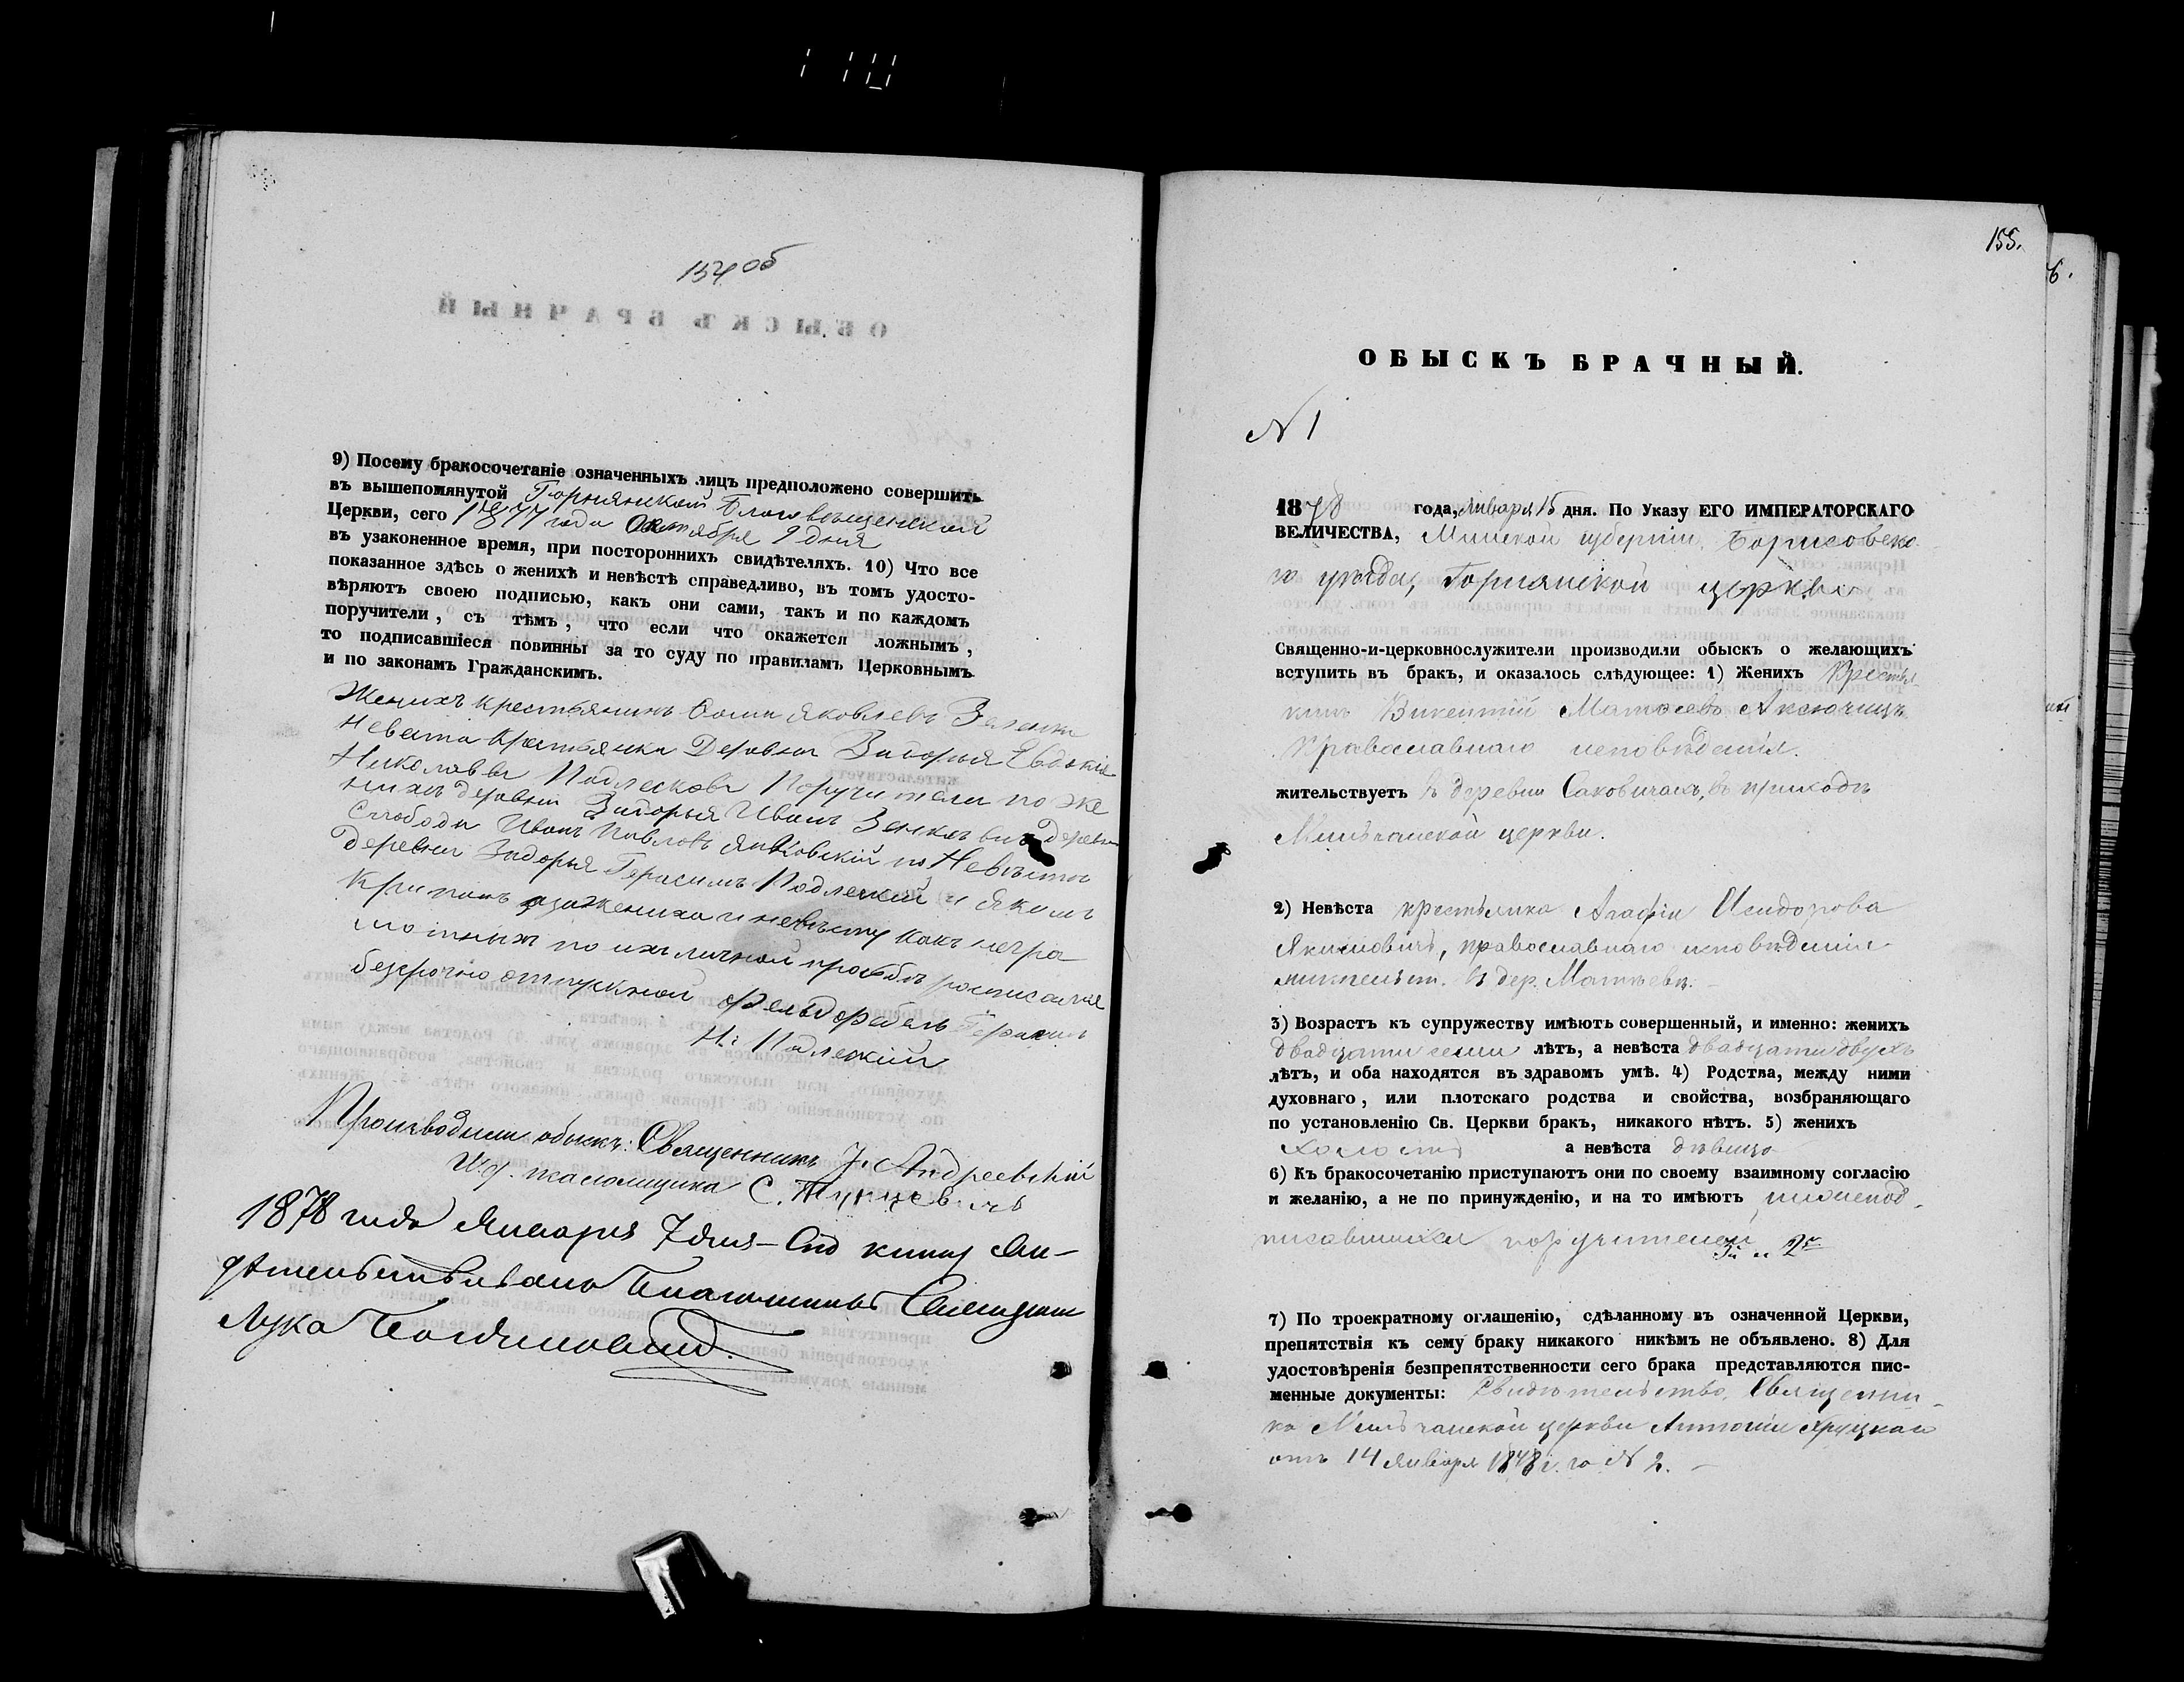 154 об
9) Посему бракосочетаніе означенныхъ лицъ предположено совершить
въ вышепомянутой Горнянской Благовѣщенской
Церкви, сего 1877 года Октября 9 дня
въ узаконенное время, при постороннихъ свидѣтеляхъ. 10) Что все
показанное здѣсь о женихѣ и невѣстѣ справедливо, въ томъ удосто-
вѣряютъ своею подписью, какъ они сами, такъ и по каждомъ
поручители, съ тѣмъ, что если что окажется ложнымъ,
то подписавшіеся повинны за то суду по правиламъ Церковнымъ
и по законамъ Гражданскимъ.
Женихъ крестьянинъ Ѳома Яковлевъ
Невеста Крестьянка Деревни Задорья Евдокія
Николаева Подлескова Поручители по же
нихъ деревни Задорья Иванъ деревни
Слободы Иванъ Павловъ Янковскій по Невѣсте
Деревни Задорья Герасимъ Подлескій и Якимъ
жениха и невѣсту какъ негра
мотныхъ по ихъ личной просьбѣ росписался
безсрочно отпускной фельдфебель Герасимъ
Н: Подлескій
Производили обыскъ: Священникъ І. Андреевскій
И. д. псаломщика С.
1878 года Января 7 дня – Сію книгу сви-
дѣтельствовалъ Благочинный Священникъ
Лука
155.
ОБЫСКЪ БРАЧНЫЙ.
N 1
1878 года, Января 15 дня. По Указу ЕГО ИМПЕРАТОРСКАГО
ВЕЛИЧЕСТВА, Минской губерніи, Борисовска-
го уѣзда, Горнянской церкви
Священно-и-церковнослужители производили обыскъ о желающихъ
вступить въ бракъ, и оказалось слѣдующее: 1) Женихъ Крестья-
нинъ Викентій Матѳеевъ Аксючицъ
Православнаго исповѣданія.
жительствуетъ въ деревни Саковичахъ, въ приходѣ
Мильчанской церкви.
2) Невѣста крестьянка Агафія Исидорова
Якимовичъ, православнаго исповѣданія
жительст. въ дер. Матвеевк.
3) Возрастъ къ супружеству имѣютъ совершенный, и именно: женихъ
двадцати семи лѣтъ, а невѣста двадцати двухъ
лѣтъ, и оба находятся въ здравомъ умѣ. 4) Родства, между ними
духовнаго, или плотскаго родства и свойства, возбраняющаго
по установленію Св. Церкви бракъ, никакого нѣтъ. 5) женихъ
холостъ а невѣста дѣвица
6) Къ бракосочетанію приступаютъ они по своему взаимному согласію
и желанію, а не по принужденію, и на то имѣютъ нижепод-
писавшихся поручителей
7) По троекратному оглашенію, сдѣланному въ означенной Церкви,
препятствія къ сему браку никакого никѣмъ не объявлено. 8) Для
удостовѣренія безпрепятственности сего брака представляются пис-
менные документы: Свидѣтельство Священни-
ка Мильчанской церкви Антонія Хруцкаго
отъ 14 Января 1878 г. за N 2. –